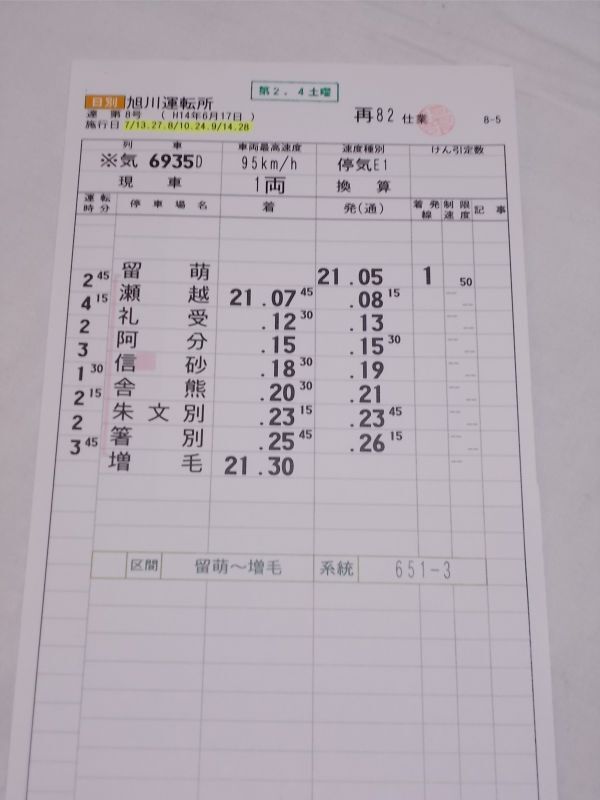 第2．4土曜
日別 旭川運転所
達 第8号 （ H14年6月17日 ） 再82 仕業 8-5
施行日 7/13.27.8/10.24.9/14.28
列 車 車両最高速度 速度種別 けん引定数
※気 6935D 95km/h 停気E1
現 車 1両 換 算
運転時分 停車場名 着 発(通) 着発線 制限速度 記事
留 萌 21.05 1 50
2 45
瀬 越 21.07 45 .08 15
4 15
礼 受 .12 30 .13
2
阿 分 .15 .15 30
3
信 砂 .18 30 .19
1 30
舎 熊 .20 30 .21
2 15
朱 文 別 .23 15 .23 45
2
箸 別 .25 45 .26 15
3 45
増 毛 21.30
区間 留萌〜増毛 系統 651-3